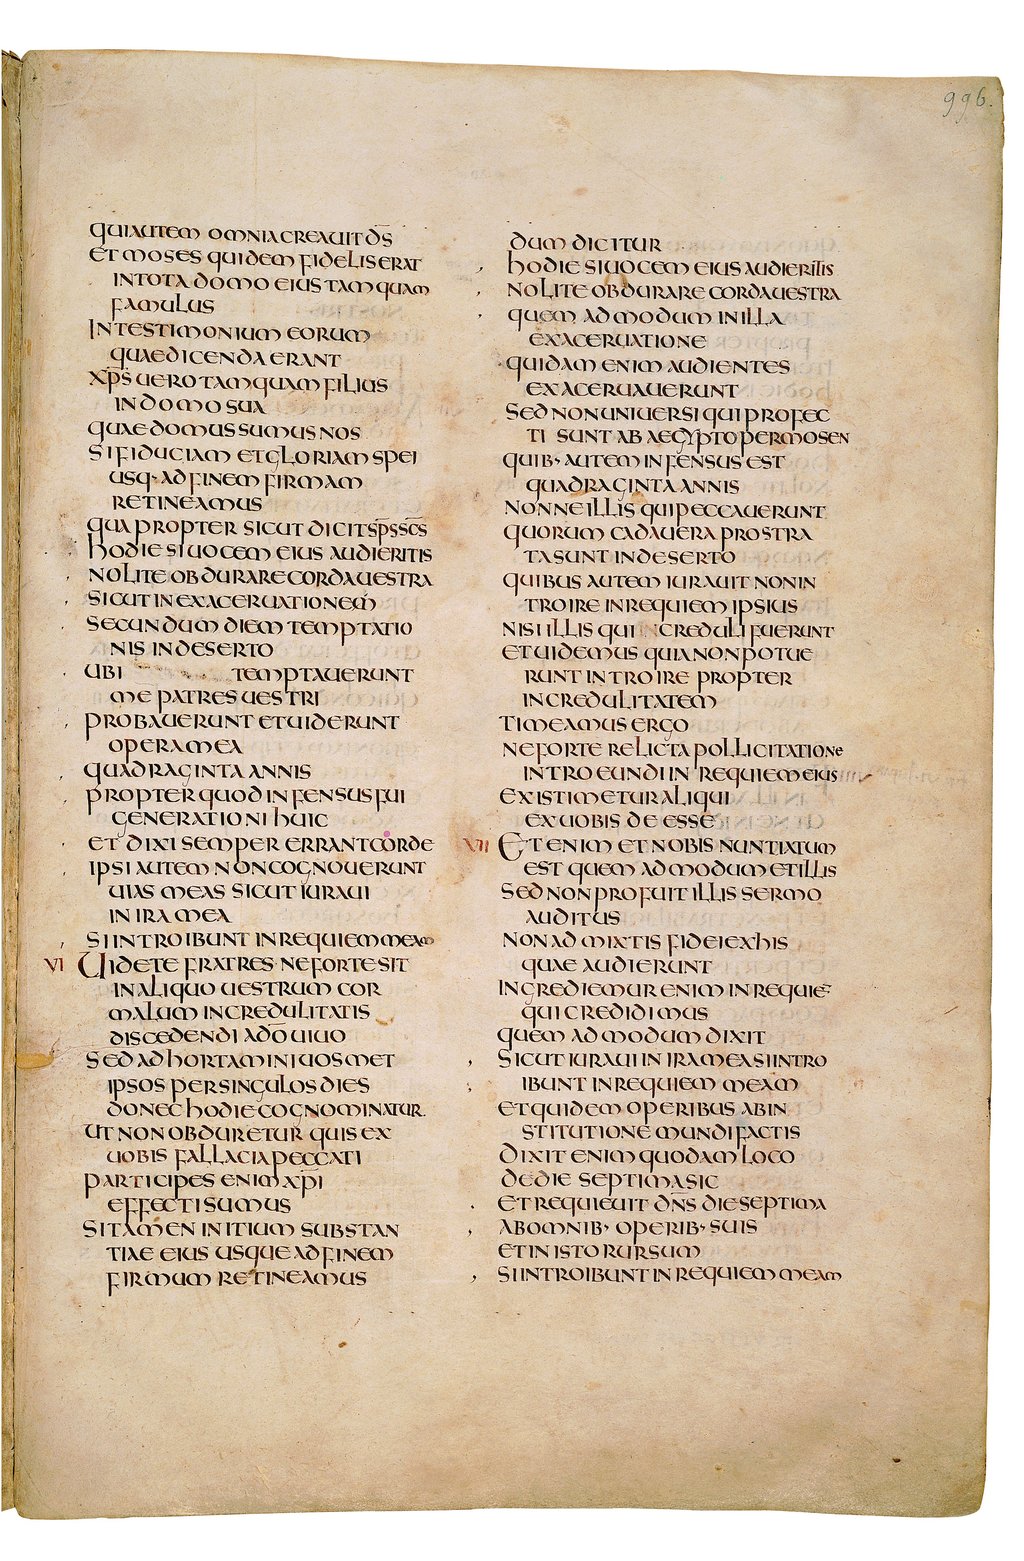 996.
QUI AUTEM OMNIA CREAUIT D̅S̅
ET MOSES QUIDEM FIDELIS ERAT
IN TOTA DOMO EIUS TAMQUAM
FAMULUS
IN TESTIMONIUM EORUM
QUAE DICENDA ERANT
XP̅S̅ UERO TAMQUAM FILIUS
IN DOMO SUA
QUAE DOMUS SUMUS NOS
SI FIDUCIAM ET GLORIAM SPEI
USQ· AD FINEM FIRMAM
RETINEAMUS
QUAPROPTER SICUT DICIT SP̅S̅ SC̅S̅
HODIE SI UOCEM EIUS AUDIERITIS
NOLITE OBDURARE CORDA UESTRA
SICUT IN EXACERUATIONEM
SECUNDUM DIEM TEMPTATIO
NIS IN DESERTO
UBI TEMPTAUERUNT
ME PATRES UESTRI
PROBAUERUNT ET UIDERUNT
OPERA MEA
QUADRAGINTA ANNIS
PROPTER QUOD INFENSUS FUI
GENERATIONI HUIC
ET DIXI SEMPER ERRANT CORDE
IPSI AUTEM NON COGNOUERUNT
UIAS MEAS SICUT IURAUI
IN IRA MEA
SI INTROIBUNT IN REQUIEM MEAM
VI UIDETE FRATRES NE FORTE SIT
IN ALIQUO UESTRUM COR
MALUM INCREDULITATIS
DISCEDENDI A D̅O̅ UIUO
SED ADHORTAMINI UOSMET
IPSOS PER SINGULOS DIES
DONEC HODIE COGNOMINATUR
UT NON OBDURETUR QUIS EX
UOBIS FALLACIA PECCATI
PARTICIPES ENIM XP̅I̅
EFFECTI SUMUS
SI TAMEN INITIUM SUBSTAN
TIAE EIUS USQUE AD FINEM
FIRMUM RETINEAMUS
DUM DICITUR
HODIE SI UOCEM EIUS AUDIERITIS
NOLITE OBDURARE CORDA UESTRA
QUEMADMODUM IN ILLA
EXACERUATIONE
QUIDAM ENIM AUDIENTES
EXACERUAUERUNT
SED NON UNIUERSI QUI PROFEC
TI SUNT AB AEGYPTO PER MOSEN
QUIB· AUTEM INFENSUS EST
QUADRAGINTA ANNIS
NONNE ILLIS QUI PECCAUERUNT
QUORUM CADAUERA PROSTRA
TA SUNT IN DESERTO
QUIBUS AUTEM IURAUIT NON IN
TROIRE IN REQUIEM IPSIUS
NISI ILLIS QUI CREDULI FUERUNT
ET UIDEMUS QUIA NON POTUE
RUNT INTROIRE PROPTER
INCREDULITATEM
TIMEAMUS ERGO
NE FORTE RELICTA POLLICITATIONE
INTROEUNDI IN REQUIEM EIUS
EXISTIMETUR ALIQUI
EX UOBIS DEESSE
VII ETENIM ET NOBIS NUNTIATUM
EST QUEMADMODUM ET ILLIS
SED NON PROFUIT ILLIS SERMO
AUDITUS
NON ADMIXTIS FIDEI EX HIS
QUAE AUDIERUNT
INGREDIEMUR ENIM IN REQUIE̅
QUI CREDIDIMUS
QUEMADMODUM DIXIT
SICUT IURAUI IN IRA MEA SI INTRO
IBUNT IN REQUIEM MEAM
ET QUIDEM OPERIBUS AB IN
STITUTIONE MUNDI FACTIS
DIXIT ENIM QUODAM LOCO
DE DIE SEPTIMA SIC
ET REQUIEUIT D̅N̅S̅ DIE SEPTIMA
AB OMNIB· OPERIB· SUIS
ET IN ISTO RURSUM
SI INTROIBUNT IN REQUIEM MEAM